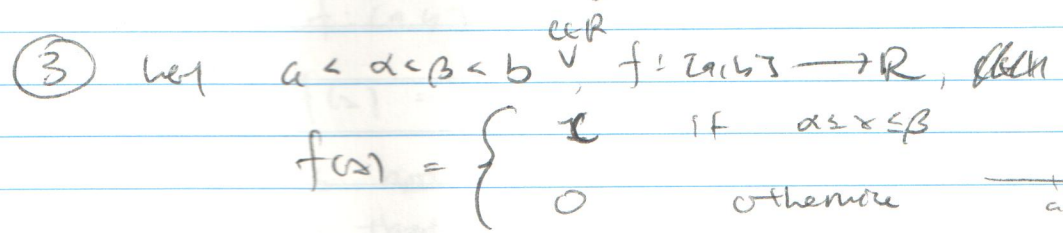 ③ Let a < α < β < b, c ∈ R f : [a, b] → R,
f(x) = { c if α ≤ x ≤ β
0 otherwise
a